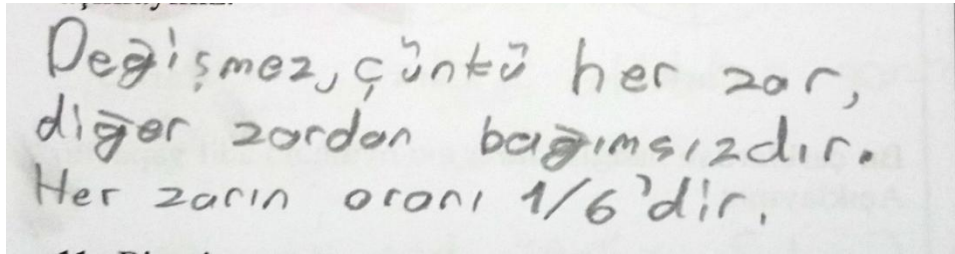 Değişmez, çünkü her zar,
diğer zardan bağımsızdır.
Her zarın oranı 1/6'dir.